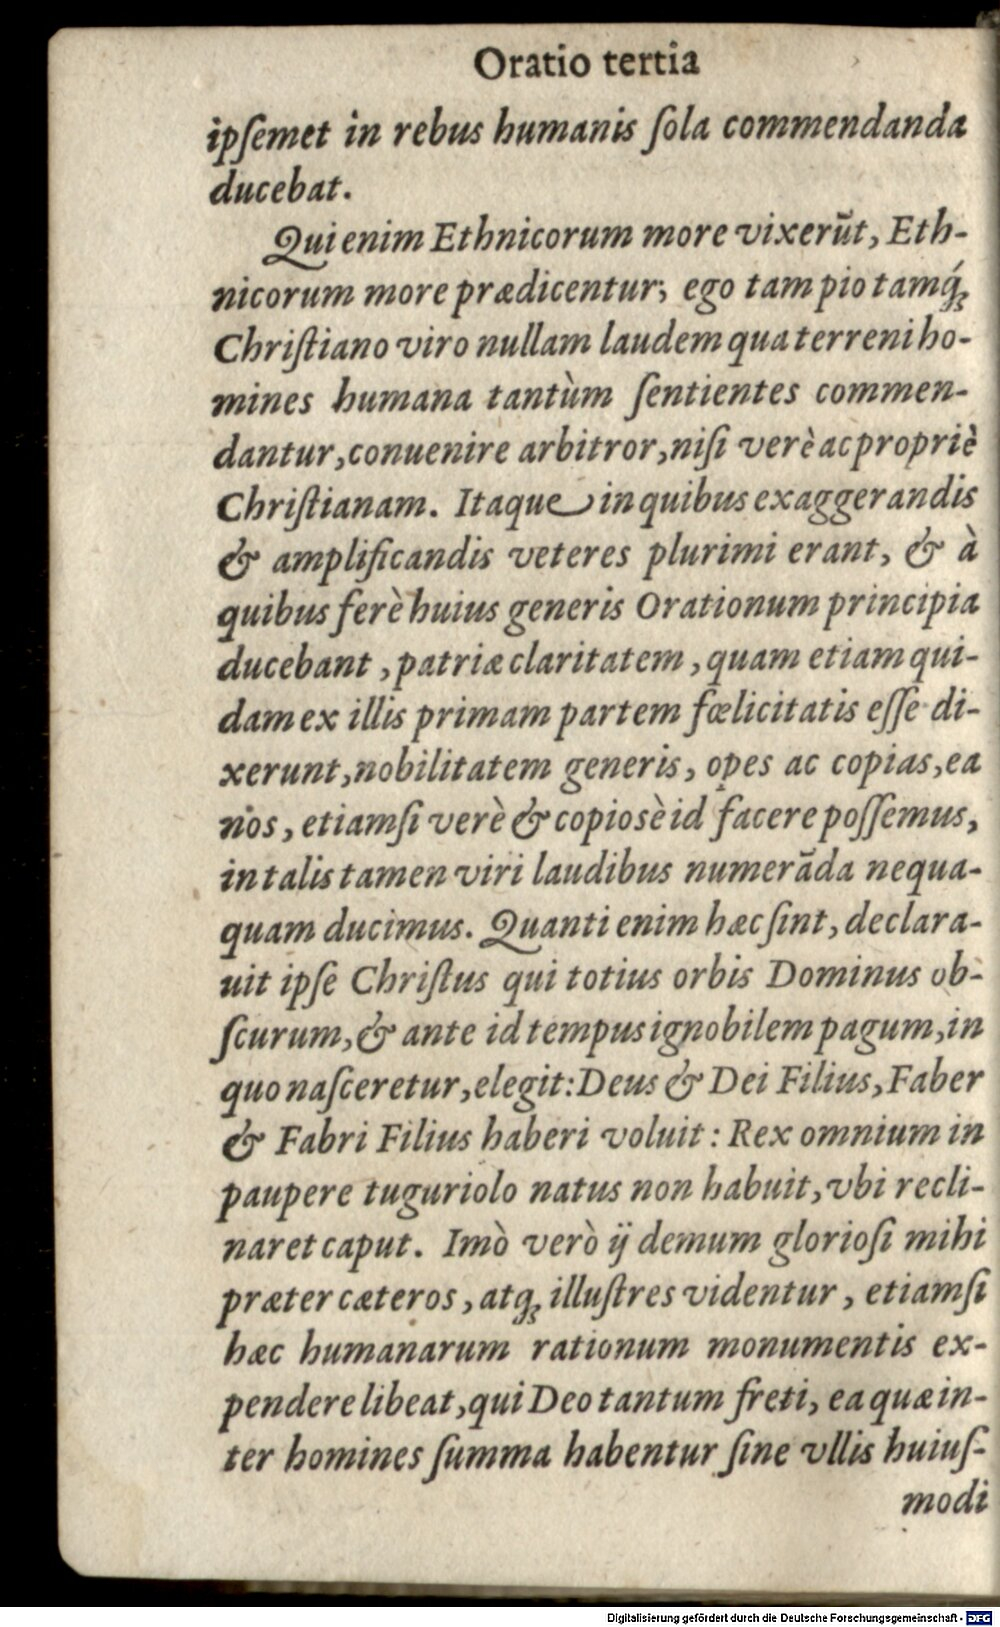 Oratio tertia
ipſemet in rebus humanis ſola commendanda
ducebat.
Qui enim Ethnicorum more vixerūt, Eth-
nicorum more prædicentur; ego tam pio tamq́ꝫ
Chriſtiano viro nullam laudem qua terreni ho-
mines humana tantùm ſentientes commen-
dantur, conuenire arbitror, niſi verè ac propriè
Chriſtianam. Itaque in quibus exaggerandis
& amplificandis veteres plurimi erant, & à
quibus ferè huius generis Orationum principia
ducebant, patriæ claritatem, quam etiam qui-
dam ex illis primam partem fœlicitatis eſſe di-
xerunt, nobilitatem generis, opes ac copias, ea
nos, etiamſi verè & copiosè id facere poſſemus,
in talis tamen viri laudibus numerāda nequa-
quam ducimus. Quanti enim hæc ſint, declara-
uit ipſe Chriſtus qui totius orbis Dominus ob-
ſcurum, & ante id tempus ignobilem pagum, in
quo naſceretur, elegit: Deus & Dei Filius, Faber
& Fabri Filius haberi voluit: Rex omnium in
paupere tuguriolo natus non habuit, vbi recli-
naret caput. Imò verò ij demum glorioſi mihi
præter cæteros, atqꝫ illuſtres videntur, etiamſi
hæc humanarum rationum monumentis ex-
pendere libeat, qui Deo tantum freti, ea quæ in-
ter homines ſumma habentur ſine vllis huiuſ-
modi
Digitalisierung gefördert durch die Deutsche Forschungsgemeinschaft - DFG